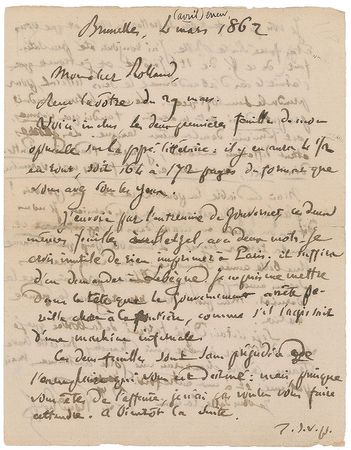 (avril) erreur
Bruxelles, 4 mars 1862
Monsieur Rolland,
Reçu la vôtre du 29 mars.
Voici inclus les deux premières feuilles de mon
opuscule sur la Propr. littéraire : il y en aura 4 1/2
en tout, soit 164 à 172 pages du format que
vous avez sous les yeux.
J'envoie par l'entremise de ces deux
mêmes feuilles à Hetzel, avec deux mots. Je
crois inutile de rien imprimer à Paris. il suffira
d'en demander à Lebègue. Je ne puis me mettre
dans la tête que le Gouvernement arrête pa-
reille chose à la frontière, comme s'il s'agissait
d'une machine infernale.
Ces deux feuilles sont sans préjudice de
l'exemplaire qui vous est destiné : mais puisque
vous êtes de l'affaire, je n'ai pas voulu vous faire
attendre. A bientôt la suite.